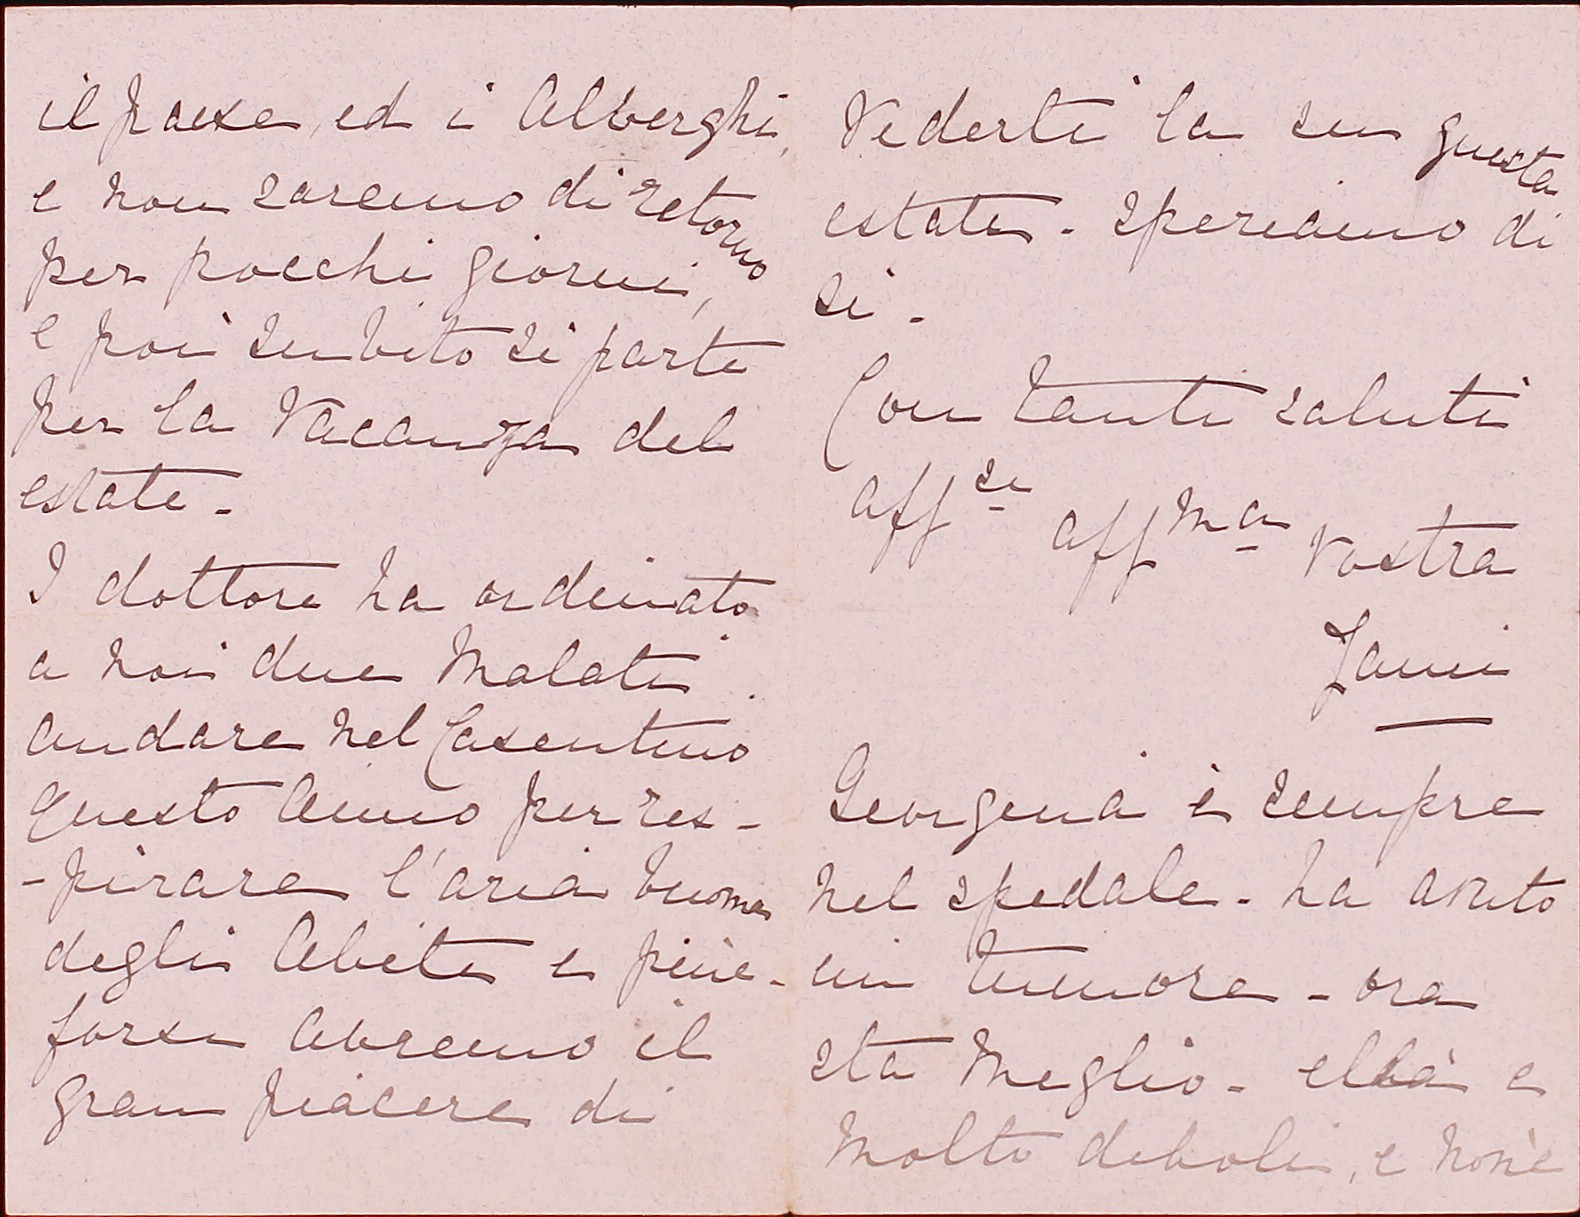 il paese, ed i Alberghi,
e non saremo di retorno
per pocchi giorni,
e poi subito si parte
per la Vacanza del
estate -
I dottore ha ordinato
a noi due Malati
andare nel Casentino
questo Anno per res-
-pirare l'aria buona
degli Abete e pine -
forse Avremo il
gran piacere di
Vederti la su questa
estate - speriamo di
si -
Con tanti saluti
aff se aff ma Vostra
Georgena è sempre
nel spedale - ha avuto
un tumore - ora
sta meglio - ella e
Molto debole, e non è